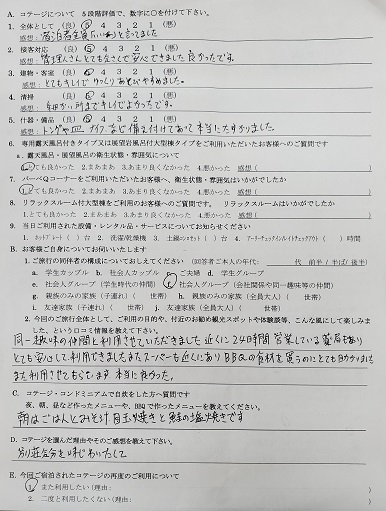 A. コテージについて 5段階評価で、数字に○を付けて下さい。
1. 全体として (良) 5 4 3 2 1 (悪)
感想: 宿泊者全員「いいね」と言ってました
2. 接客対応 (良) 5 4 3 2 1 (悪)
感想: 管理人さんとても気さくで安心できました 良かったです。
3. 建物・客室 (良) 5 4 3 2 1 (悪)
感想: とてもキレイでゆっくりあそびやすめました。
4. 清掃 (良) 5 4 3 2 1 (悪)
感想: 細かい所までキレイでよかったです。
5. 什器・備品 (良) 5 4 3 2 1 (悪)
感想: トングや皿、ナイフなど備え付けてあって本当にたすかりました。
6. 専用露天風呂タイプ又は展望岩風呂付大型棟タイプをご利用いただいたお客様へのご質問です
a. 露天風呂・展望風呂の衛生状態・雰囲気について
1.とても良かった 2.まあまあ 3.あまり良くなかった 4.悪かった 感想 ( )
7. バーベQコーナーをご利用いただいたお客様へ、衛生状態・雰囲気はいかがでしたか
1.とても良かった 2.まあまあ 3.あまり良くなかった 4.悪かった 感想 ( )
8. リラックスルーム付大型棟をご利用のお客様へのご質問です。 リラックスルームはいかがでしたか
1.とても良かった 2.まあまあ 3.あまり良くなかった 4.悪かった 感想 ( )
9. 当日ご利用された設備・レンタル品・サービスについてお知らせください
1. ホットプレート ( ) 台 2. 洗濯/乾燥機 3. 土鍋コンロセット ( ) 台 4. アーリーチェックイン/レイトチェックアウト ( ) 時間
B. お客様ご自身についてお伺いいたします
1. ご旅行の同伴者の構成についておしえてください (回答者ご本人の年代: 代 前半 / 半ば / 後半)
a. 学生カップル b. 社会人カップル c. ご夫婦 d. 学生グループ
e. 社会人グループ (学生時代の仲間) f. 社会人グループ (会社関係や同一趣味等の仲間)
g. 親族のみの家族 (子連れ) ( 世帯) h. 親族のみの家族 (全員大人) ( 世帯)
i. 友達家族 (子連れ) ( 世帯) j. 友達家族 (全員大人) ( 世帯)
2. 今回のご旅行全体として、ご利用の目的や、付近のお勧め観光スポットや体験談等、こんな風にして楽しみました、という口コミ情報を教えて下さい。
同一趣味の仲間と利用させていただきました 近くに24時間営業している薬局もあり
とても安心して利用できました またスーパーも近くにあり BBQの食材を買うのにとても助かりました
また利用させてもらいます 本当に良かった。
C. コテージ・コンドミニアムで自炊をした方へ質問です
夜、朝、昼など作ったメニューや、BBQで作ったメニューを教えてください。
朝はごはんとみそ汁 目玉焼きと鮭の塩焼きです
D. コテージを選んだ理由やそのご感想を教えて下さい。
別荘気分を味じわいたくて
E. 今回ご宿泊されたコテージの再度のご利用について
1. また利用したい (理由:
2. 二度と利用したくない (理由: